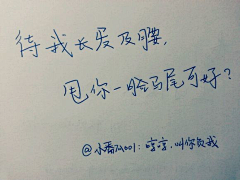 待我长发及腰，
甩你一脸马尾可好？
@小番石001：哼哼，叫你负我